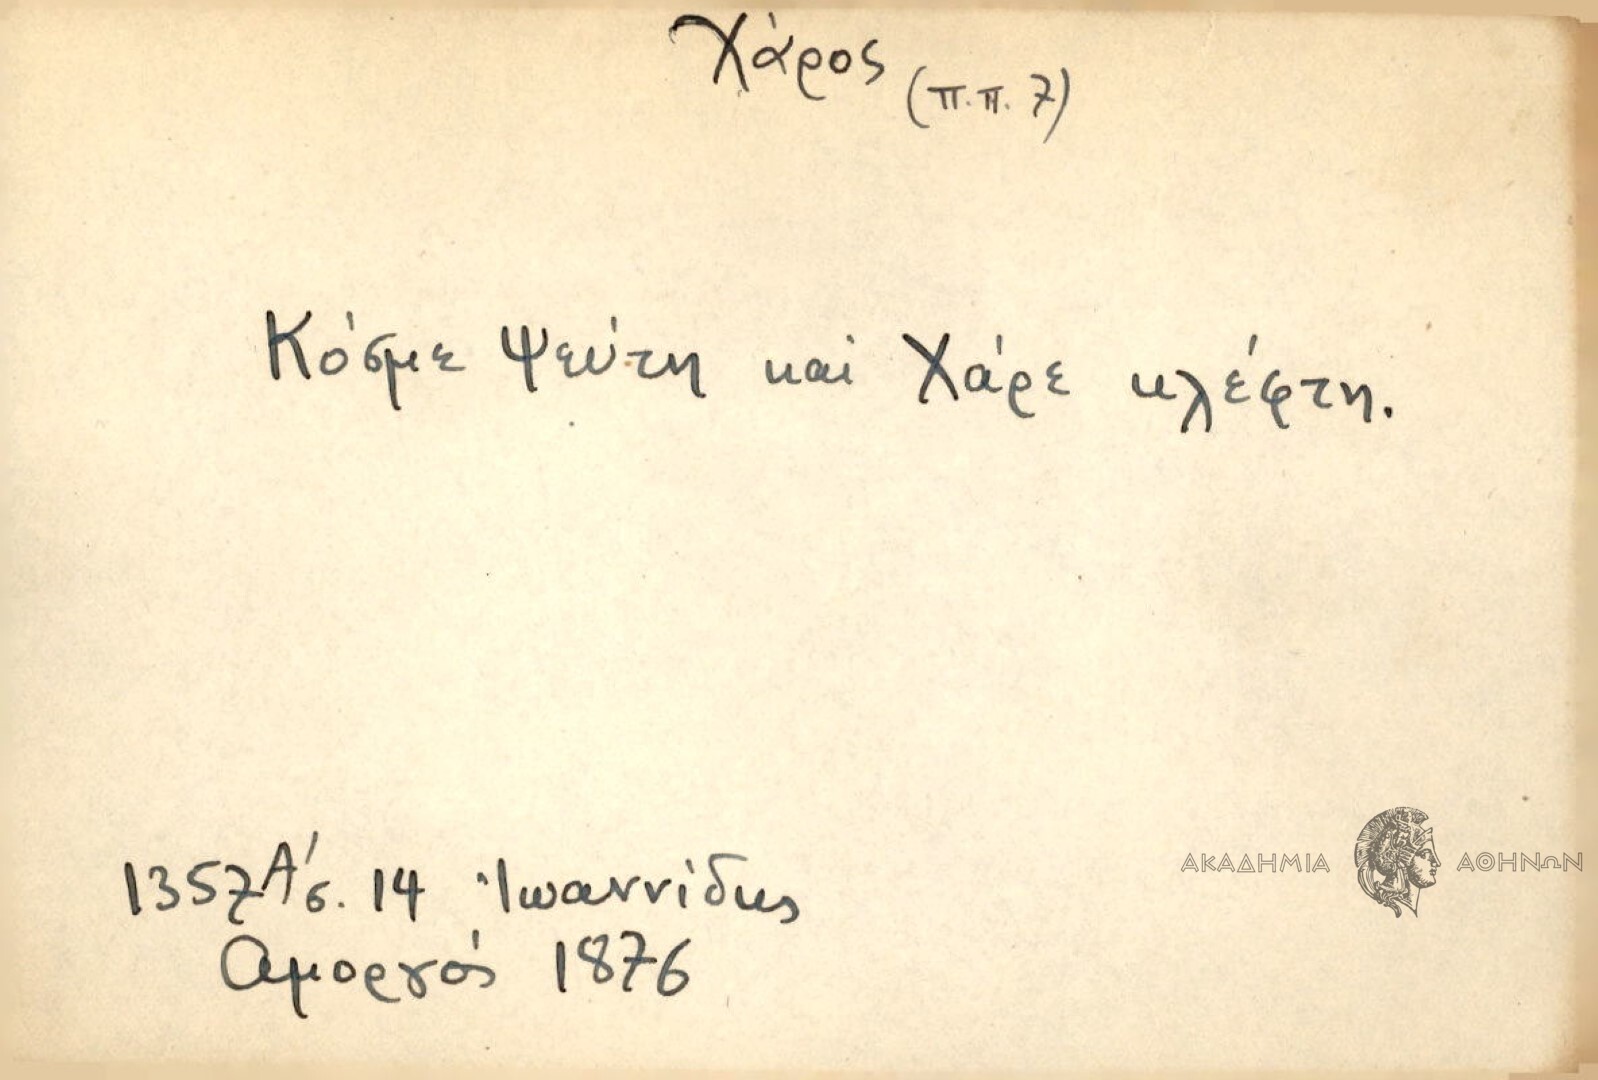 Χάρος (π.π. 7)
Κόσμε ψεύτη καί Χάρε κλέφτη.
1357 Α' σ. 14 Ἰωαννίδης
Αμοργός 1876
ΑΚΑΔΗΜΙΑ ΑΘΗΝΩΝ